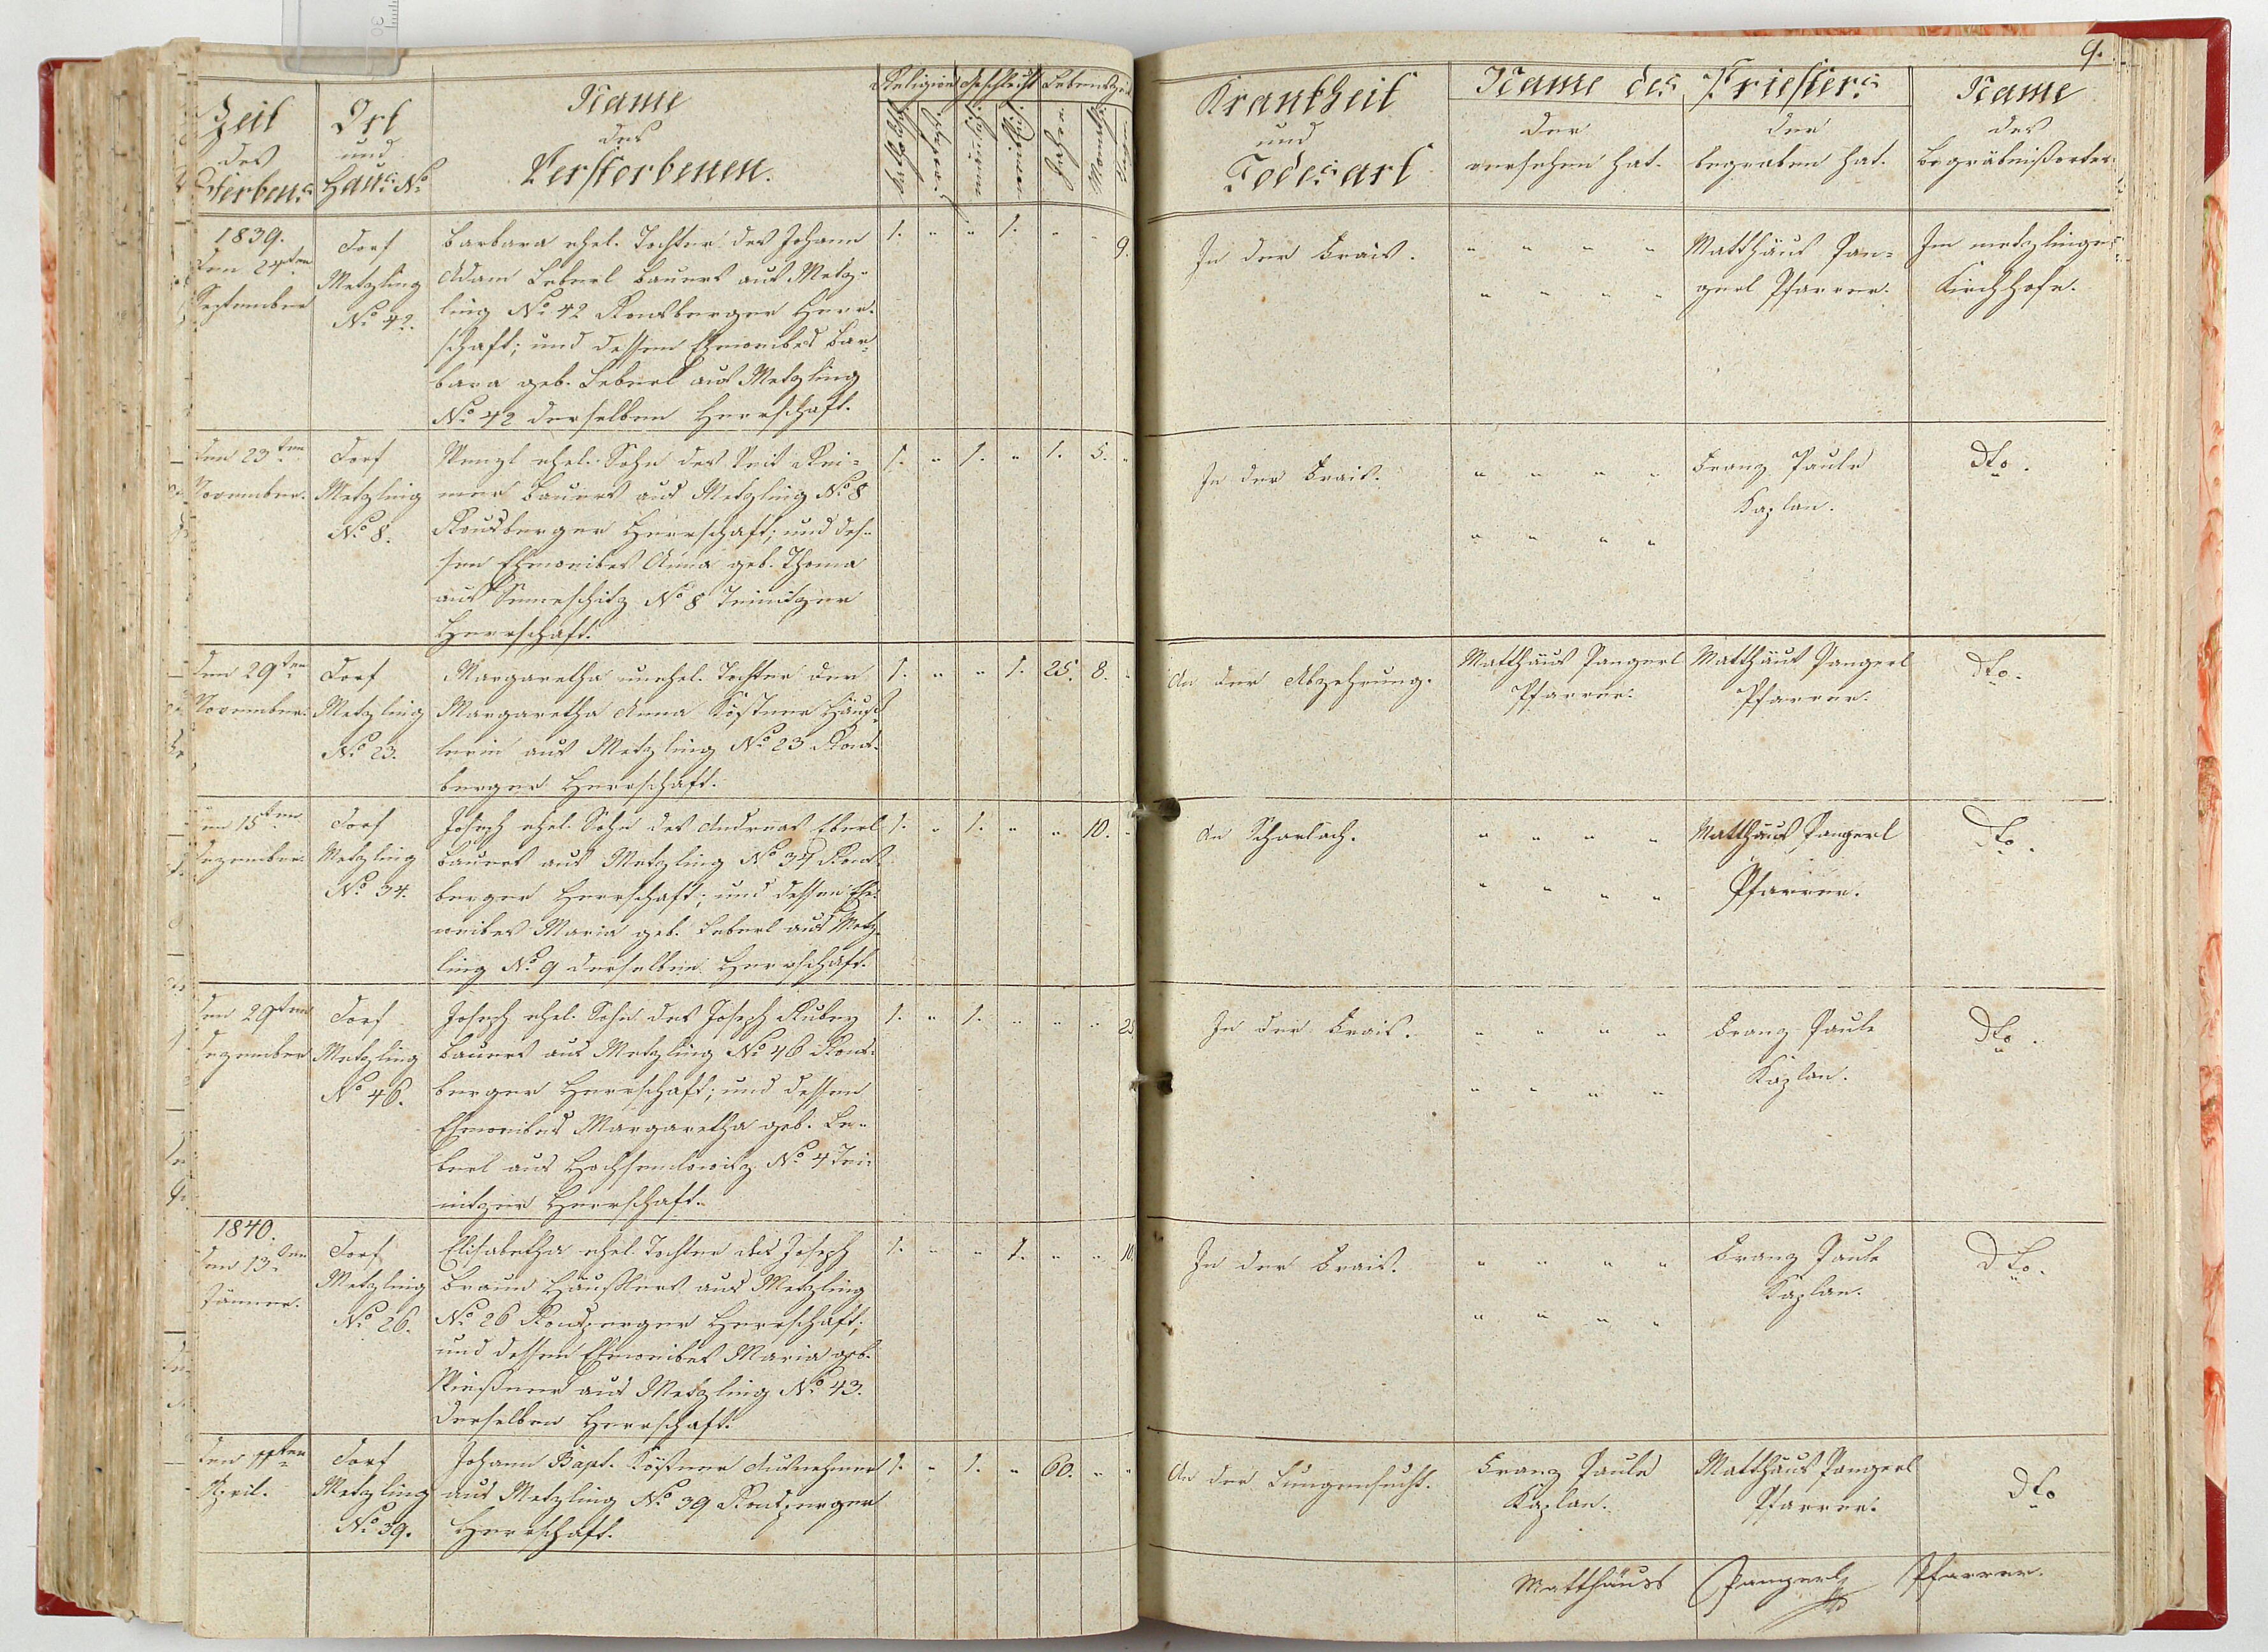 9.
Zeit
des
Sterbens
Ort
und
Haus No.
Name
des
Verstorbenen.
Religion
Geschlecht
Lebenszeit
Katholisch
Männer
Weiber
Jahre
Monate
Krankheit
und
Todesart
Name des Priesters
der
versehen hat.
der
begraben hat.
Name
des
Begräbnißortes
1839.
Den 24ten
September
Dorf
Metzling
No 42.
Barbara ehel. Tochter des Johann
Adam Leberl Bauers aus Metz-
ling No 42 Ronsberger Herr-
schaft; und dessen Eheweibes Bar-
bara geb. Leberl aus Metzling
No 42 derselben Herrschaft.
1. " " 1. " " 9.
In der Frais.
" " " "
" " " "
Matthäus Pan=
gerl Pfarrer.
Im metzlinger
Kirchhofe.
Den 23ten
November.
Dorf
Metzling
No 8.
Wenzl ehel. Sohn des Veit Rei=
mer Bauers aus Metzling No 8
Ronsberger Herrschaft; und des-
sen Eheweibes Anna geb. Thoma
aus No 8 Teinitzer
Herrschaft.
1. " 1. " 1. 5. "
In der Frais.
" " " "
" " " "
Franz Paule
Kaplan.
Dto.
Den 29ten
November.
Dorf
Metzling
No 23.
Margaretha unehel. Tochter der
Margaretha Anna Köstner Häus-
lerin aus Metzling No 23 Rons-
berger Herrschaft.
1. " " 1. 25. 8. "
An der Abzehrung.
Matthäus Pangerl
Pfarrer.
Matthäus Pangerl
Pfarrer.
Dto.
Den 15ten
Dezember
Dorf
Metzling
No 34.
Joseph ehel. Sohn des Andreas Eberl
Bauers aus Metzling No 34 Rons-
berger Herrschaft; und dessen Ehe-
weibes Maria geb. Leberl aus Metz-
ling No 9 derselben Herrschaft.
1. " 1. " " 10. "
An Scharlach.
" " " "
" " " "
Matthäus Pangerl
Pfarrer.
Dto.
Den 29ten
Dezember
Dorf
Metzling
No 46.
Joseph ehel. Sohn des Joseph Rubey
Bauers aus Metzling No 46 Rons-
berger Herrschaft; und dessen
Eheweibes Margaretha geb. Le-
berl aus Hochsemlowitz No 4 Tei-
nitzer Herrschaft.
1. " 1. " " "
In der Frais.
" " " "
" " " "
Franz Paule
Kaplan.
Dto.
1840.
Den 13ten
Jänner.
Dorf
Metzling
No 26.
Elisabetha ehel. Tochter des Joseph
Braun Häußlers aus Metzling
No 26 Ronsperger Herrschaft;
und dessen Eheweibes Maria geb.
aus Metzling No 43.
derselben Herrschaft.
1. " " 1. " " 10.
In der Frais.
" " " "
" " " "
Franz Paule
Kaplan.
Dto.
Den 11ten
April.
Dorf
Metzling
No 39.
Johann Bapt. Köstner Ausnehmer
aus Metzling No 39 Ronsperger
Herrschaft.
1. " 1. " 60. " "
An der Lungensucht.
Franz Paule
Kaplan.
Matthäus Pangerl
Pfarrer.
Dto
Matthäus Pangerl Pfarrer.